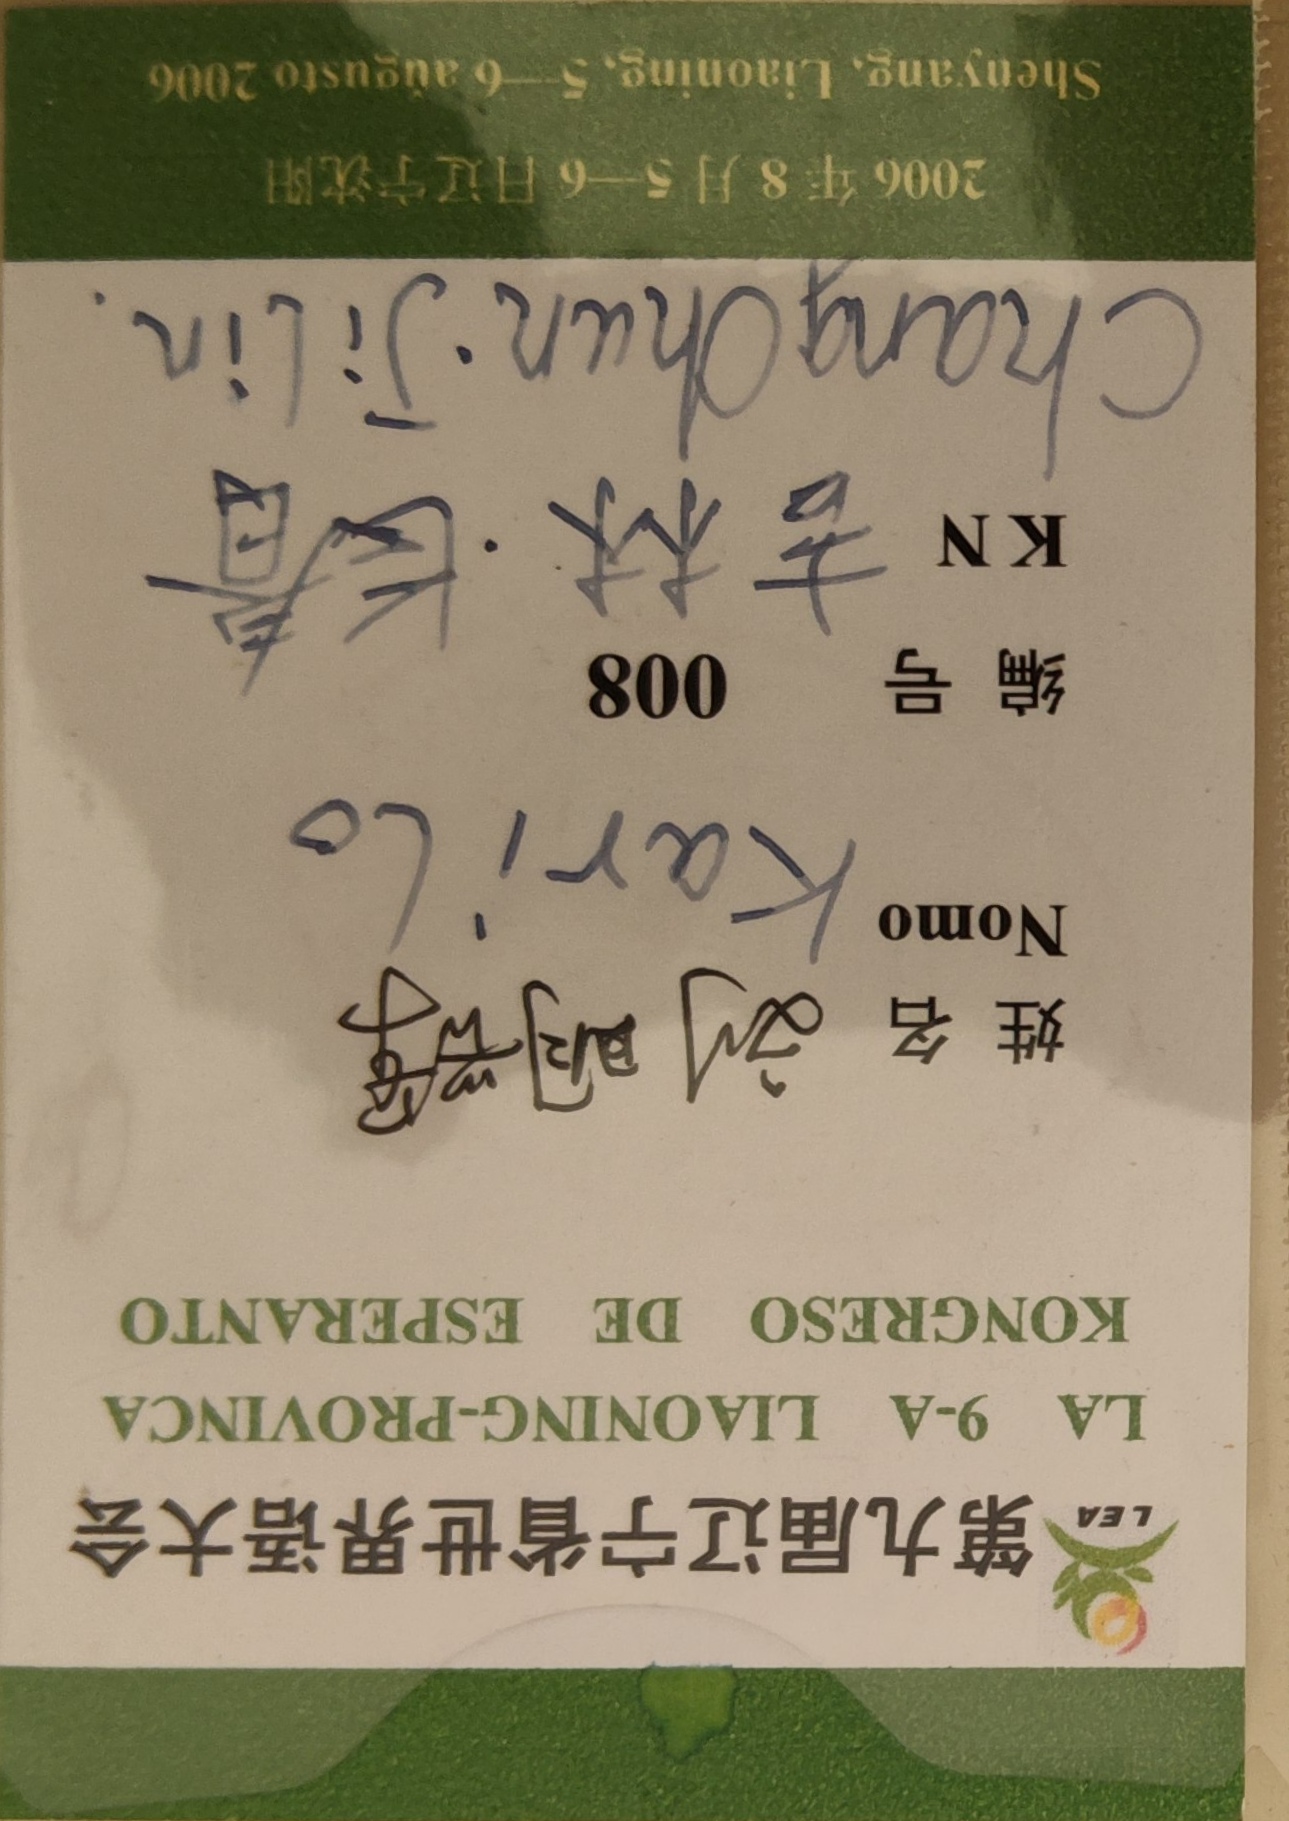 LEA
第九届辽宁省世界语大会
LA 9-A LIAONING-PROVINCA
KONGRESO DE ESPERANTO
姓 名 刘明
Nomo KariLo
编 号 008
KN 吉林·长春
ChangChun·JiLin.
2006 年 8 月 5—6 日辽宁沈阳
Shenyang, Liaoning, 5—6 aŭgusto 2006